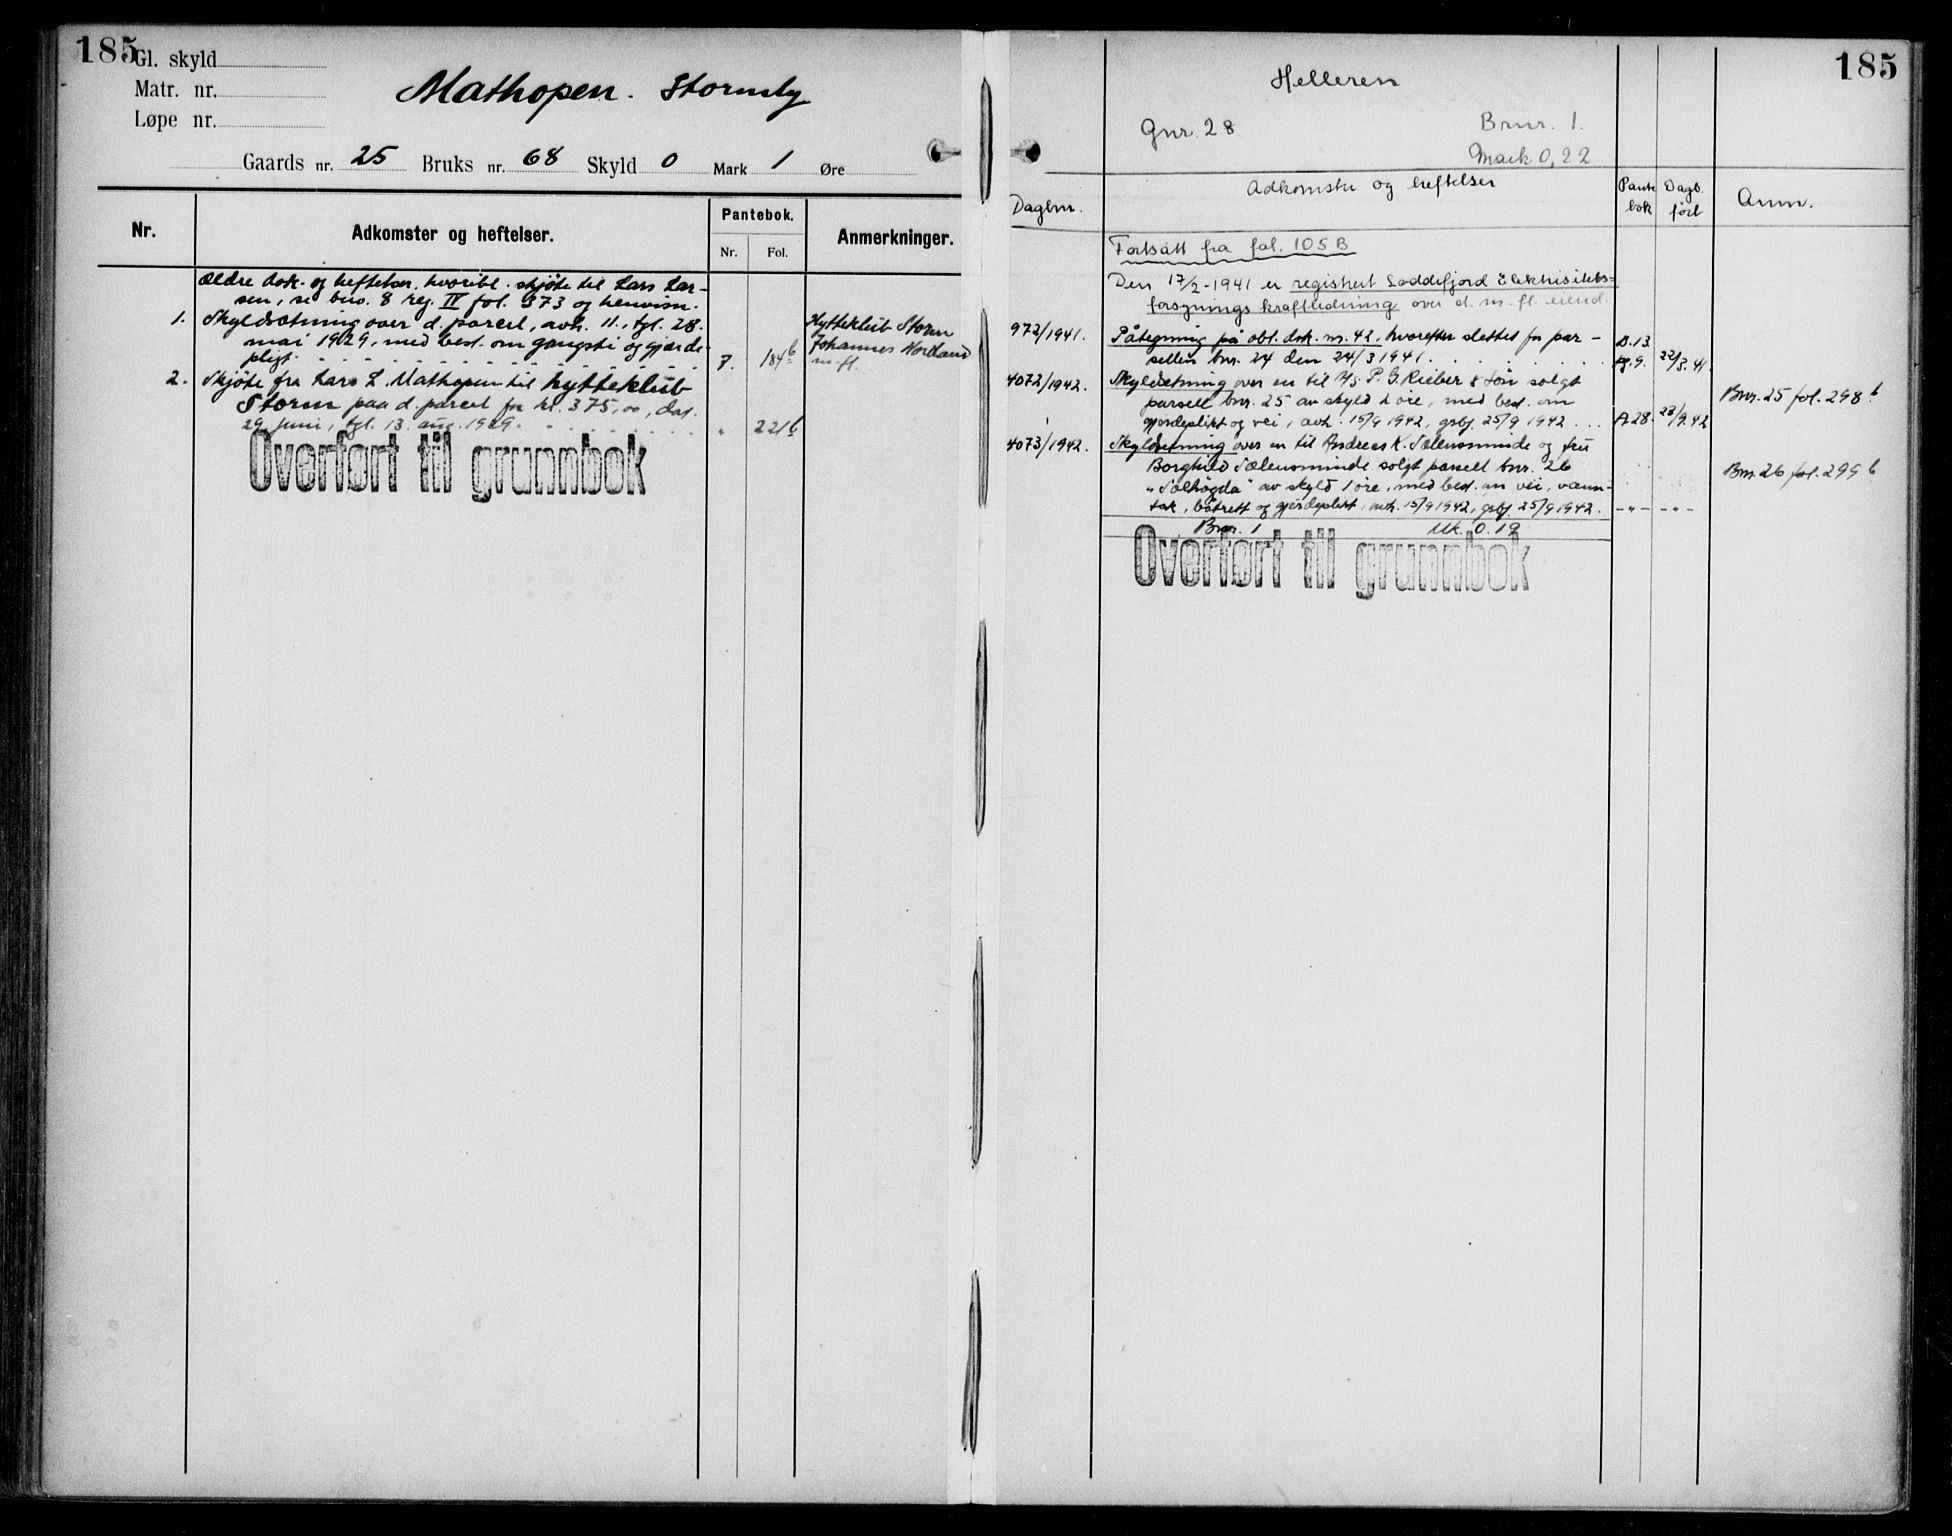 185
Gl. skyld
Matr. nr.
Løpe nr.
Mathopen. Stormly
Gaards nr. 25 Bruks nr. 68 Skyld 0 Mark 1 Øre
Nr.
Adkomster og heftelser.
Pantebok.
Nr. Fol.
Anmerkninger.
Ældre dok. og heftelser, hvoribl. skjöte til Lars Lar-
sen, se brno. 8 reg. IV fol. 373 og henvisn.
1. Skyldsætning over d. parcel, avh. 11., tgl. 28.
mai 1929, med best. om gangsti og gjærde-
pligt. 7. 184b
Hytteklub Storm
Johannes Nordland
m. fl.
2. Skjöte fra Lars L. Mathopen til Hytteklub
Storm paa d. parcel for kr. 375,00, dat.
29. juni, tgl. 13. aug. 1929. " 221b
Overført til grunnbok
185
Helleren
Gnr. 28 Brnr. 1.
Mark 0,22
Dagbnr.
Adkomster og heftelser
Pante bok
Dagb. ført
Anm.
Fortsatt fra fol. 105B
Den 17/2-1941 er registrert Loddefjord Elektrisitets-
forsynings kraftledning over d. m. fl. eiend.
972/1941. Påtegning på obl. dok. nr. 42, hvorefter slettet for par-
sellen bnr. 24 den 24/3 1941. B.13 22/3.41
4072/1942. Skyldsetning over en til A/S P. G. Rieber & Søn solgt
parsell bnr. 25 av skyld 2 øre, med best. om
gjerdeplikt og vei, avh. 15/9 1942, gsbj. 25/9 1942 ... A 28. 23/9.42
Bnr. 25 fol. 298 b
4073/1942. Skyldsetning over en til Andreas K. Sælensminde og fru
Borghild Sælensminde solgt parsell bnr. 26
"Solhøgda" av skyld 1 øre, med best. om vei, vann-
tak, båtrett og gjerdeplikt, avh. 15/9 1942, gsbj. 25/9 1942. -"- -"-
Bnr. 26 fol. 299 b
Bnr. 1 Mk. 0.19
Overført til grunnbok